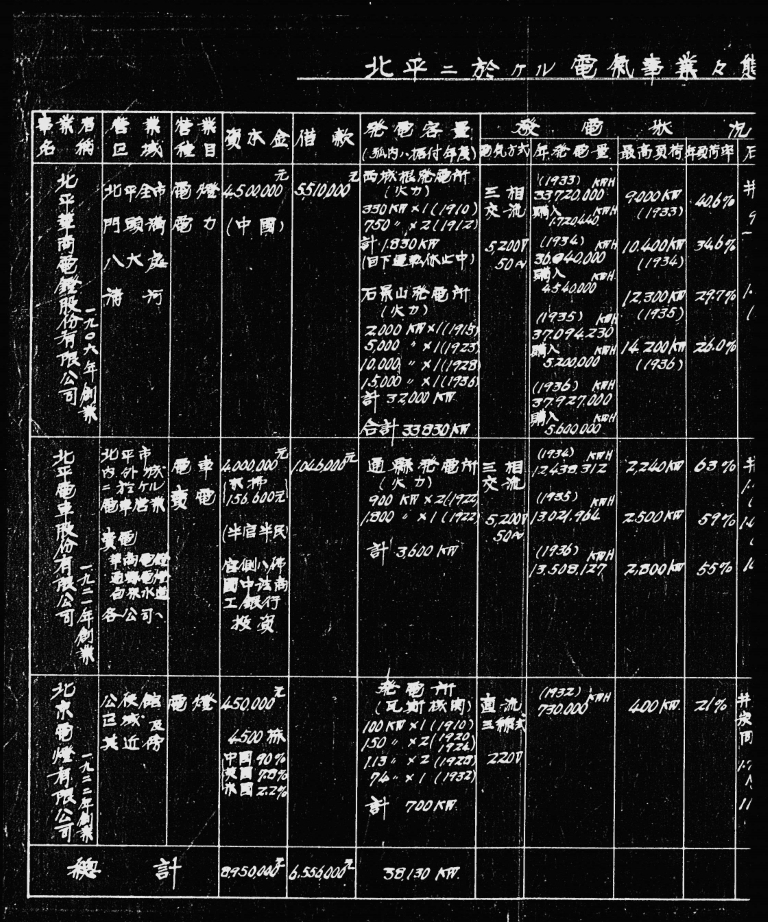 北平ニ於ケル電氣事業々態
事業者名稱
營業区域
營業種目
資本金
借款
発電容量
(孤内ハ据付年度)
發電狀況
電氣方式
年発電量
最高負荷
年負荷率
北平華商電鐙股份有限公司
一九〇六年創業
北平全市
門頭溝
八大處
清河
電燈
電力
4,500,000元
(中國)
5,510,000元
西城根発電所
(火力)
330KW×1(1910)
750〃×2(1912)
計 1,830KW
(目下運転休止中)
石景山発電所
(火力)
2,000KW×1(1915)
5,000〃×1(1923)
10,000〃×1(1928)
15,000〃×1(1936)
計 32,000KW
合計 33,830KW
三相
交流
5,200V
50~
(1933) KWH
33,720,000
購入 KWH
1,720,440
(1934) KWH
36,040,000
購入 KWH
4,540,000
(1935) KWH
37,094,230
購入 KWH
5,200,000
(1936) KWH
37,927,000
購入 KWH
5,600,000
9,000KW
(1933)
10,400KW
(1934)
12,300KW
(1935)
14,200KW
(1936)
40.6%
34.6%
29.7%
26.0%
北平電車股份有限公司
一九二一年創業
北平市
内外城
ニ於ケル
電車營業
賣電
華商電鐙
通縣電燈
自來水道
各公司、
電車
賣電
4,000,000元
156,600元
(半官半民)
官側ハ佛
國中法商
工銀行
投資
1,046,000元
通縣発電所
(火力)
900KW×2(1922)
1,800〃×1(1922)
計 3,600KW
三相
交流
5,200V
50~
(1934) KWH
12,438,312
(1935) KWH
13,021,964
(1936) KWH
13,508,127
2,240KW
2,500KW
2,800KW
63%
59%
55%
北京電燈有限公司
一九二二年創業
公使館
区域及
其近傍
電燈
450,000元
4500株
中國 90%
英國 7.8%
米國 2.2%
発電所
(瓦斯機関)
100KW×1(1910)
150〃×2(1920
1924)
113〃×2(1928)
74〃×1(1932)
計 700KW
直流
三線式
220V
(1932) KWH
730,000
400KW
21%
總計
8,950,000元
6,556,000元
38,130KW